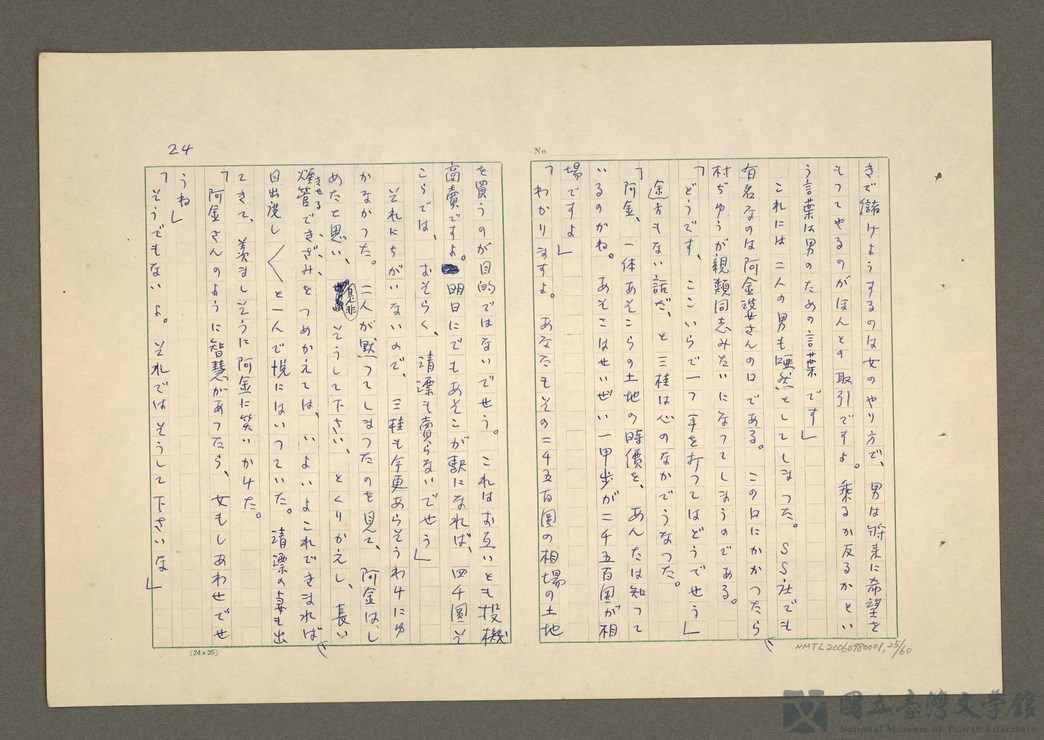 No.
きで儲けようするのは女のやり方で、男は将来に希望を
もつてやるのがほんとの取引ですよ。乘るか反るかとい
う言葉は男のための言葉です」
これには二人の男も唖然としてしまつた。SS社でも
有名なのは阿金婆さんの口である。この口にかかつたら
村ぢゆうが親類同志みたいになつてしまうのである。
「どうです、ここいらで一つ手を打つてはどうでせう」
途方もない話だ、と三桂は心のなかでうなつた。
「阿金、一体あそこらの土地の時價を、あんたは知つて
いるのかね。あそこはせいぜい一甲歩が二千五百圓が相
場ですよ」
「わかりますよ。あなたもその二千五百圓の相場の土地
24
を買うのが目的ではないでせう。これはお互いとも投機
商賣ですよ。明日にでもあそこが駅になれば、四千圓そ
こらでは、おそらく、清漂も賣らないでせう」
それにちがいないので、三桂も今更あらそうわけにゆ
かなかつた。二人が默つてしまつたのを見て、阿金はし
めたと思い、是非そうして下さい、とくりかえし、長い
煙管できざみをつめかえては、いよいよこれできまれば
きせる
目出度し〱と一人で悦にはいつていた。清漂の妻も出
てきて、羨ましそうに阿金に笑いかけた。
「阿金さんのように智慧があつたら、女もしあわせでせ
うね」
「そうでもないよ。それではそうして下さいな」
(24×25)
NMTL20060980001,25/60
國立臺灣文学館
National Museum of Taiwan Literature